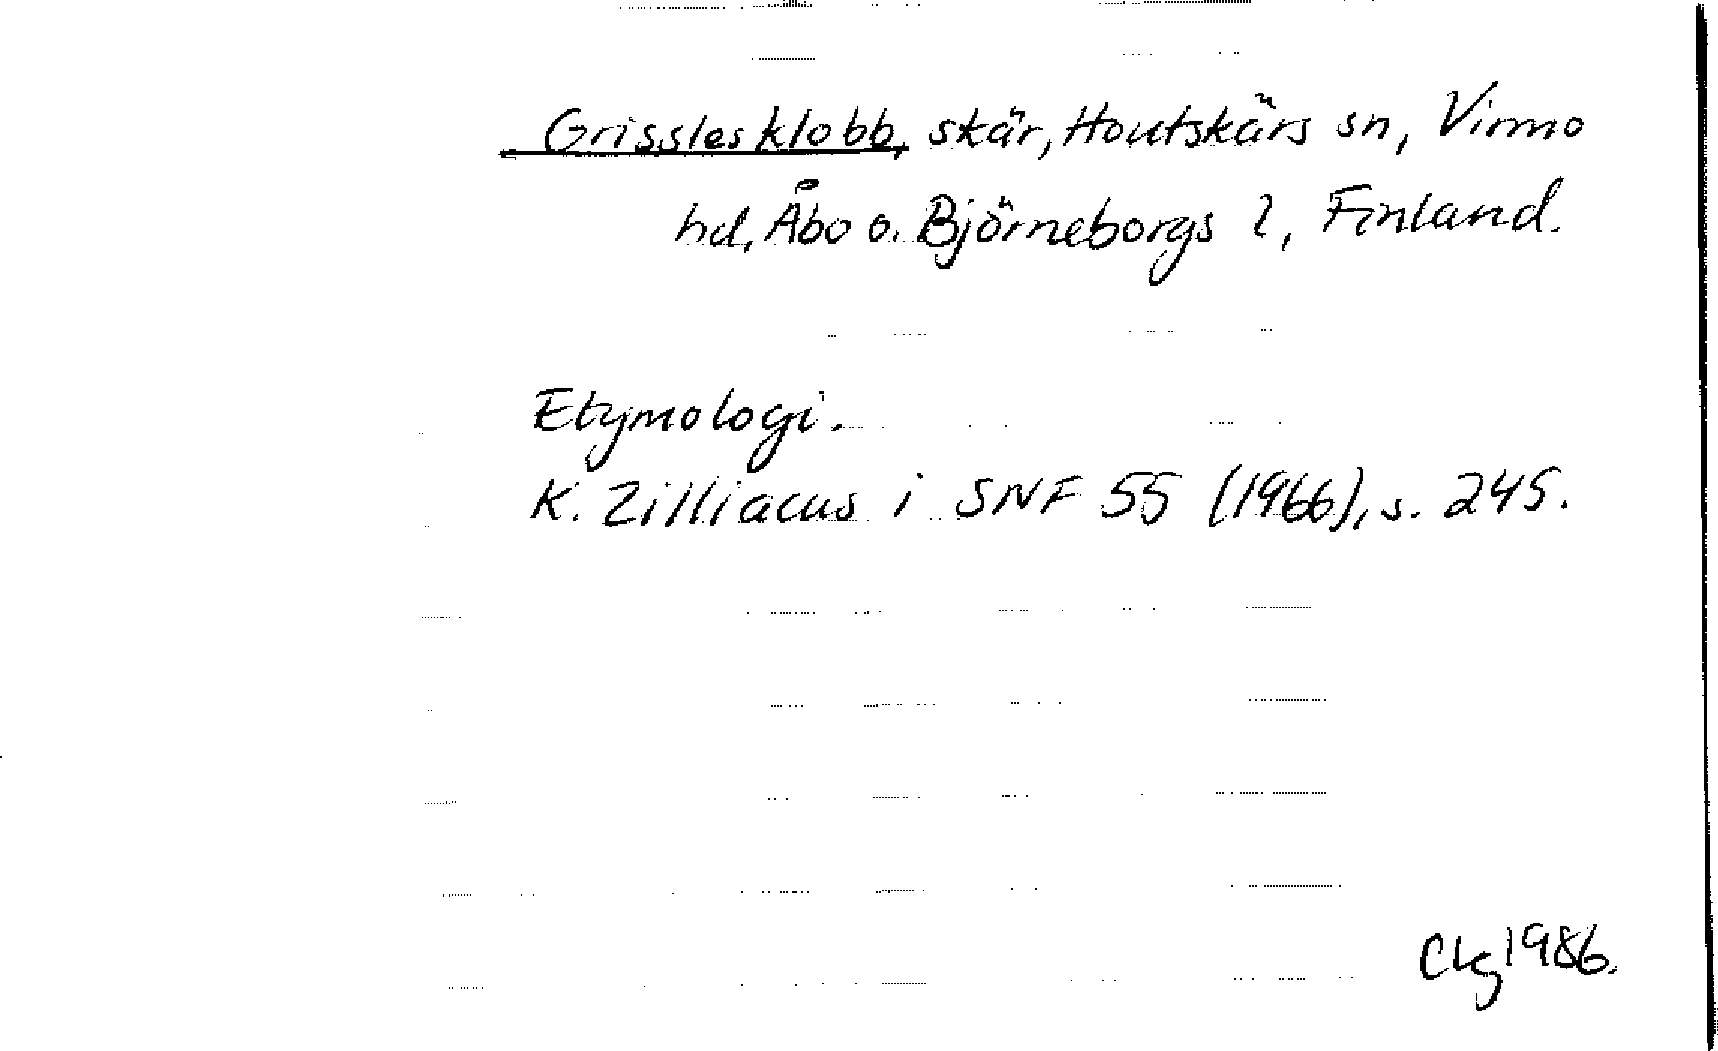 Grisslesklobb, skär, Houtskärs sn, Virmo
hd, Åbo o. Björneborgs l, Finland.
Etymologi.
K. Zilliacus i SNF 55 (1966), s. 245.
1986.